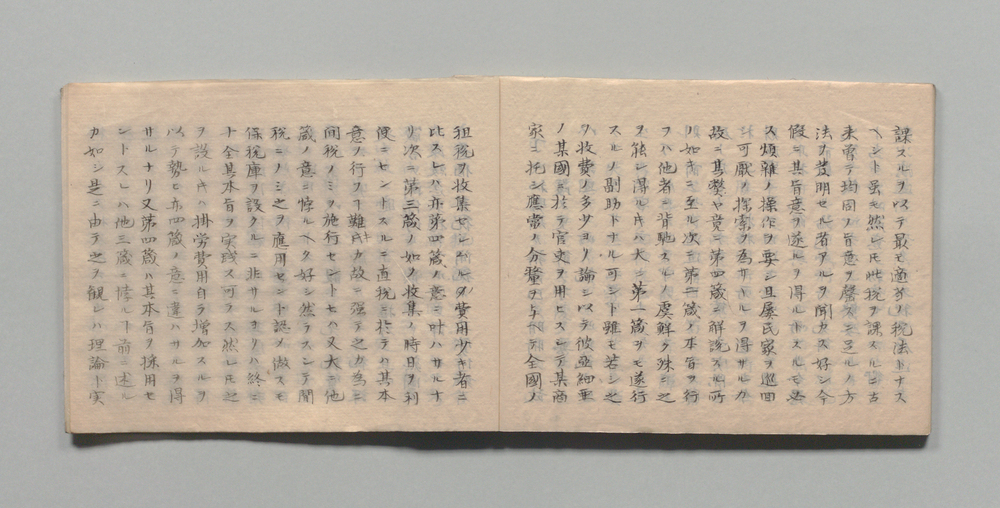 課スルヲ以テ最モ適当ノ税法トナス
ヘシト雖モ然レ𪜈此税ヲ課スルニ古
来曽テ均周ノ旨意ヲ罄スニ足ルノ方
法ヲ発明セル者アルヲ聞カス好シ今
仮ニ其旨意ヲ遂ルヲ得ルトスルモ必
ス煩雑ノ操作ヲ要シ且屡民家ヲ巡回
シ可厭ノ探索ヲ為サヽルヲ得サルカ
故ニ其弊ヤ竟ニ第四箴ニ解説スル所
ノ如キニ至ル次ニ第二箴ノ本旨ヲ行
フハ他者ニ背馳スルノ虞鮮ク殊ニ之
ヲ能シ得ル𪜈ハ大ニ第一箴ヲモ遂行
スルノ副助トナル可シト雖モ苦シ之
ヲ収費ノ多少ヨリ論シ以テ彼亜細亜
ノ某国ニ於テ官吏ヲ用ヒスシテ某商
家ニ托シ応当ノ分釐ヲ与ヘテ全国ノ
租税ヲ收集セシムル方費用少キ者ニ
比スレハ亦第四箴ノ意ニ叶ハサルナ
リ次ニ第三箴ノ如ク收集ノ時日ヲ利
便ニセントスルニ直税ニ於テハ其本
意ノ行ヲ難キカ故ニ強テ之カ為ニ
間税ノミヲ施行セントセハ又大ニ他
箴ノ意ニ悖ルヘク好シ然ラスシテ関
税ニノミ之ヲ応用セント認ノ做スモ
保税庫ヲ設クルニ非サルヨリハ終ニ
十全其本旨ヲ実践ス可ラス然レ𪜈之
ヲ設ル𪜈ハ掛労費用自ラ増加スルヲ
以テ勢ヒ亦四箴ノ意ニ違ハサルヲ得
サルナリ又第四箴ハ其本旨ヲ採用セ
ントスレハ他三箴ニ悖ルヿ前ニ述ル
カ如シ是ニ由テ之ヲ観レハ理論ト実